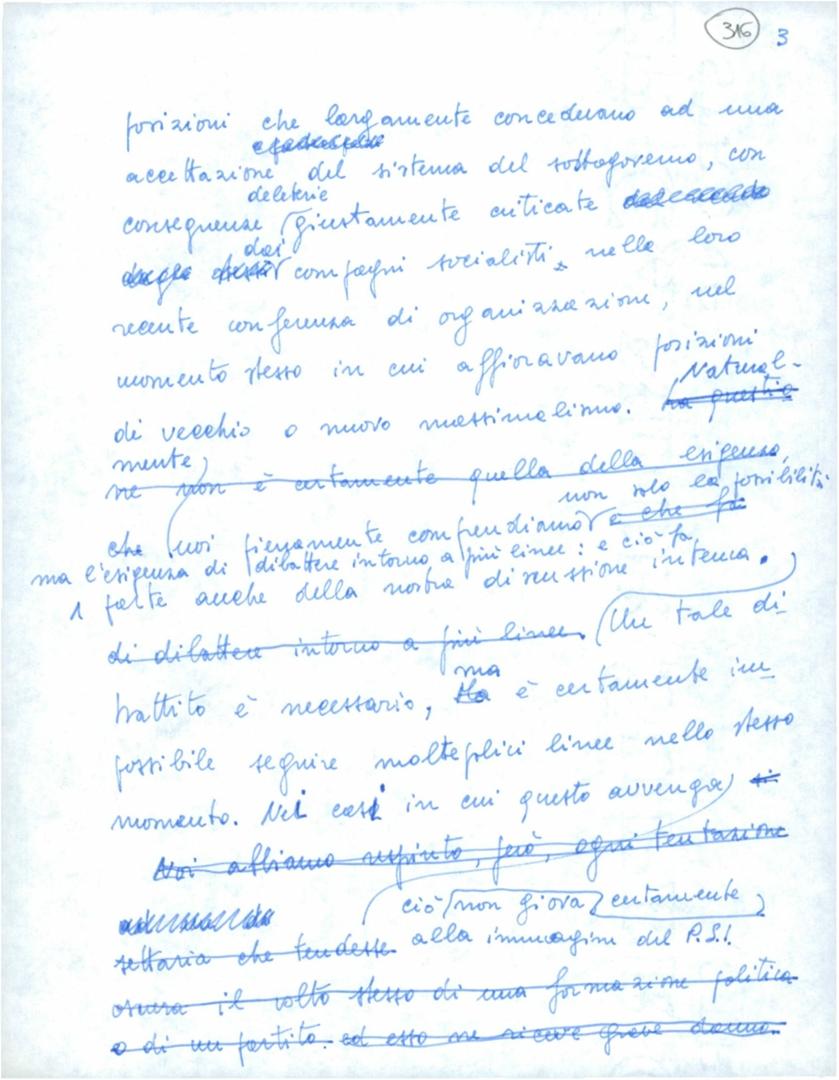 316 3
posizioni che largamente concedevano ad una
accettazione del sistema del sottogoverno, con
deleterie
conseguenze giustamente criticate
dai
compagni socialisti, nella loro
recente conferenza di organizzazione, nel
momento stesso in cui affioravano posizioni
Natural-
di vecchio o nuovo massimalismo. La questio
mente,
ne non è certamente quella della esigenza,
non solo la possibilità
che noi pienamente comprendiamo e che fa
ma l'esigenza di dibattere intorno a più linee: e ciò fa
1 parte anche della nostra discussione interna.
di dibattere intorno a più linee. Un tale di-
ma
battito è necessario, Ma è certamente im-
possibile seguire molteplici linee nello stesso
momento. Nei casi in cui questo avvenga si
Noi abbiamo respinto, però, ogni tentazione
ciò non giova certamente
settaria che tendesse alla immagine del P.S.I.
oscura il volto stesso di una formazione politica
o di un partito. ed esso ne riceve grave danno.